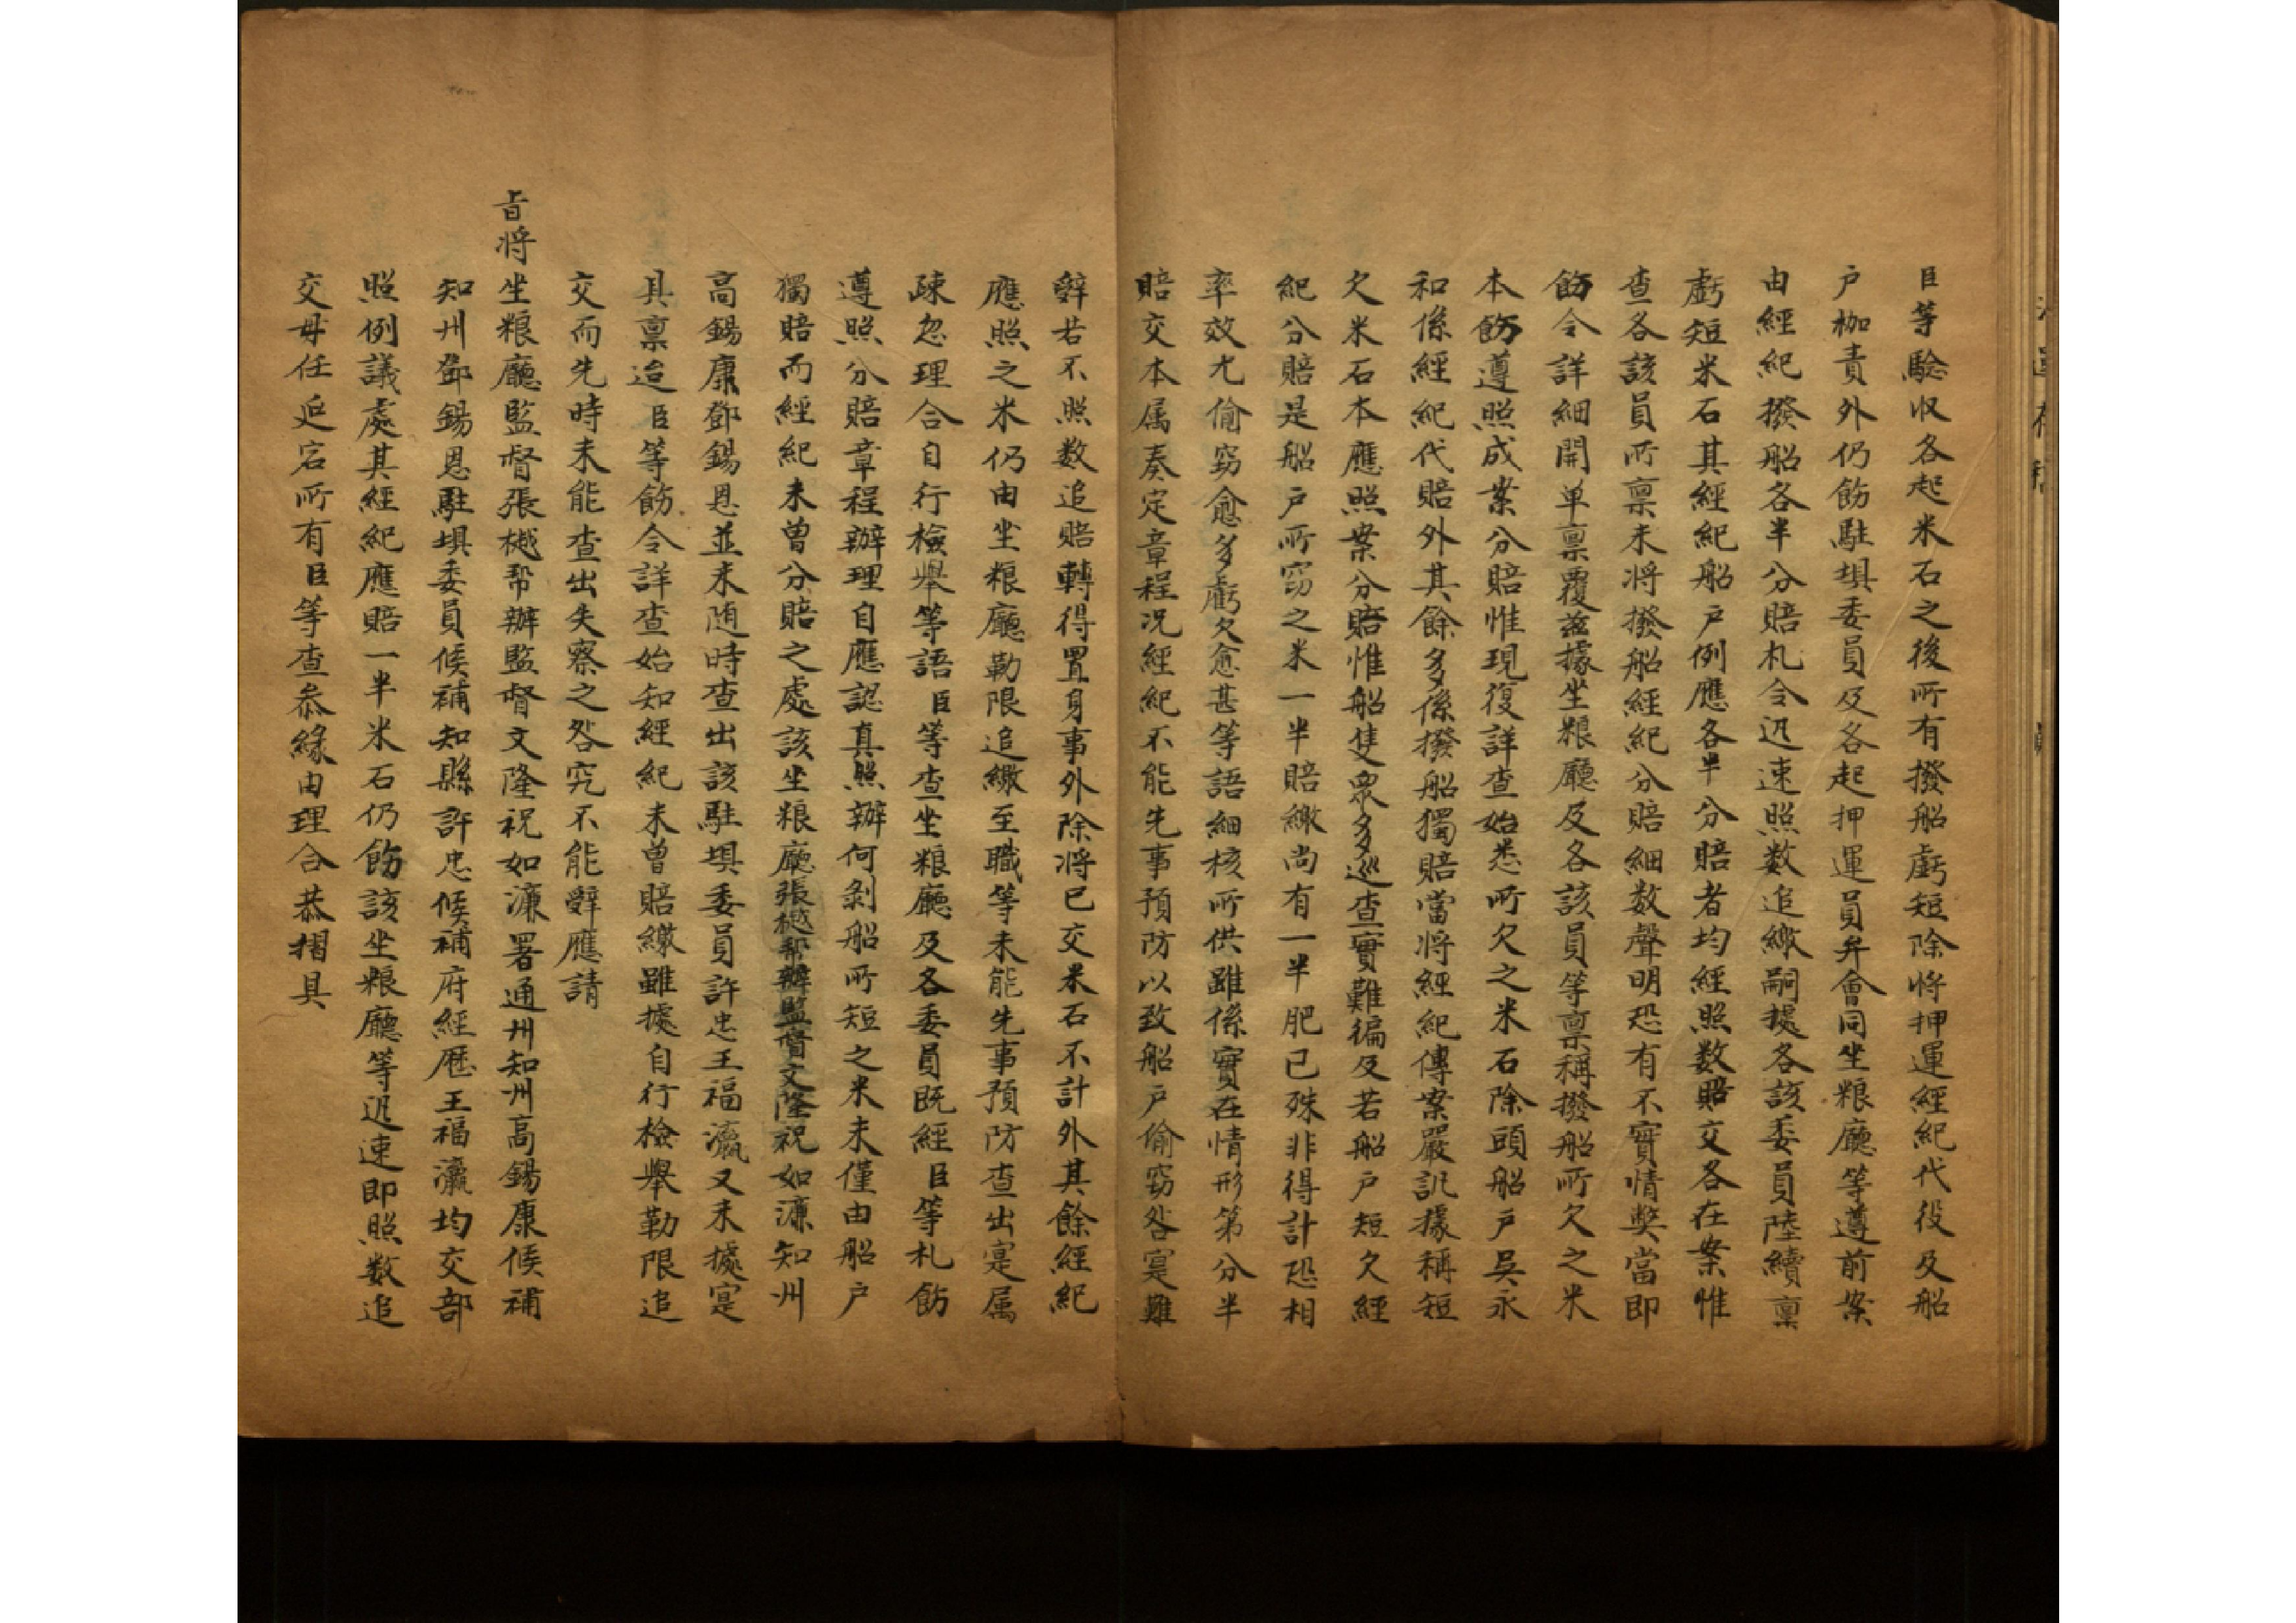 臣等驗收各起米石之後所有撥船虧短除將押運經紀代役及船
户枷責外仍飭駐埧委員及各起押運員弁會同坐粮廳等遵前案
由經紀撥船各半分賠札令迅速照数追繳嗣據各該委員陸續禀
虧短米石其經紀船户例應各半分賠者均經照数賠交各在案惟
查各該員所禀未将撥船經紀分賠細数聲明恐有不實情獘當即
飭令詳細開单禀覆兹據坐粮廳及各該員等禀稱撥船所欠之米
本飭遵照成案分賠惟現復詳查始悉所欠之米石除頭船户吳永
和係經紀代賠外其餘多係撥船獨賠當将經紀傳案嚴訊據稱短
欠米石本應照案分賠惟船隻衆多巡查實難徧及若船户短欠經
紀分賠是船户所窃之米一半賠繳尚有一半肥己殊非得計恐相
率效尤偷窃愈多虧欠愈甚等語細核所供雖係實在情形第分半
賠交本属奏定章程况經紀不能先事預防以致船户偷窃咎寔難
辤若不照数追賠轉得置身事外除将已交米石不計外其餘經紀
應照之米仍由坐粮廳勒限追繳至職等未能先事預防查出寔属
疎忽理合自行檢舉等語臣等查坐粮廳及各委員既經臣等札飭
遵照分賠章程辦理自應認真照辦何剝船所短之米未僅由船户
獨賠而經紀未曾分賠之處該坐粮廳張樾帮辦監督文隆祝如濂知州
高錫康鄧錫恩並未随時查出該駐埧委員許忠王福瀛又未據寔
具禀迨臣等飭令詳查始知經紀未曾賠繳雖據自行檢舉勒限追
交而先時未能查出失察之咎究不能辤應請
旨将坐粮廳監督張樾帮辦監督文隆祝如濂署通州知州高錫康候補
知州鄧錫恩駐埧委員候補知縣許忠候補府經歷王福瀛均交部
照例議處其經紀應賠一半米石仍飭該坐粮廳等迅速即照数追
交毋任延宕所有臣等查叅緣由理合恭摺具